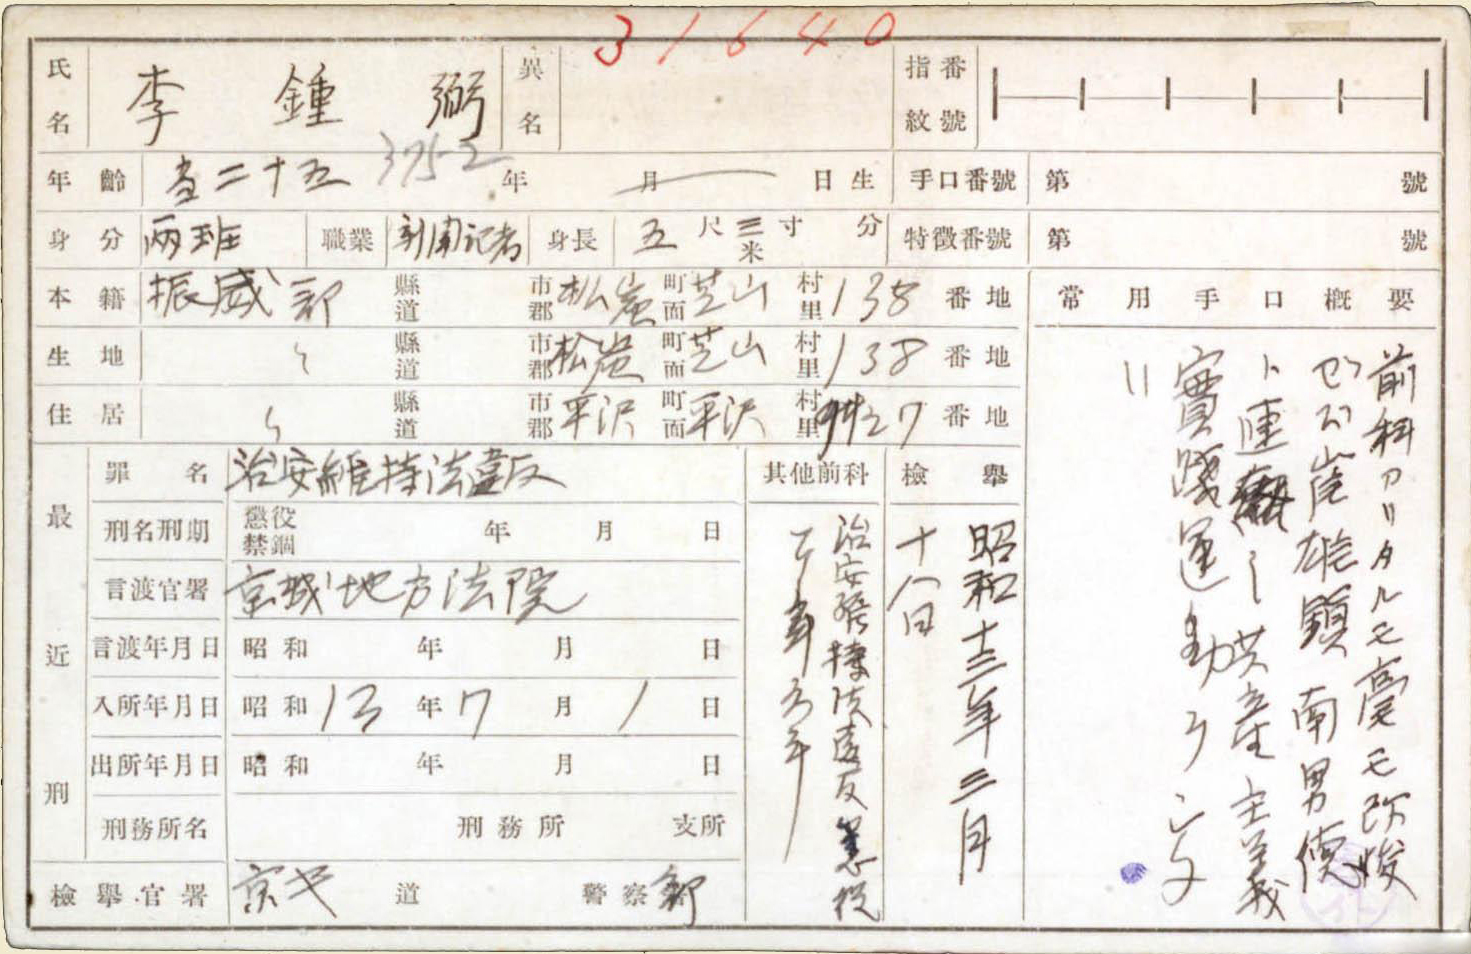 31640
氏名 李鍾弼 異名 指紋番號
年齡 當二十五 年 月 日生 手口番號 第 號
3752
身分 兩班 職業 新聞記者 身長 五尺三寸 分 米 特徵番號 第 號
本籍 振威郡 縣道 市郡 松炭 町面 芝山 村里 138 番地
生地 〃 縣道 市郡 松炭 町面 芝山 村里 138 番地
住居 〃 縣道 市郡 平沢 町面 平沢 村里 番地
常用手口概要
前科アリタルモ毫モ改悛
セズ 南男德
ト連絡シ共産主義
實踐運動
最近刑
罪名 治安維持法違反
刑名刑期 懲役 禁錮 年 月 日
言渡官署 京城地方法院
言渡年月日 昭和 年 月 日
入所年月日 昭和13年7月1日
出所年月日 昭和 年 月 日
刑務所名 刑務所 支所
檢擧官署 京キ 道 警察部
其他前科
治安維持法違反 懲役
檢擧
昭和十三年三月
十八日